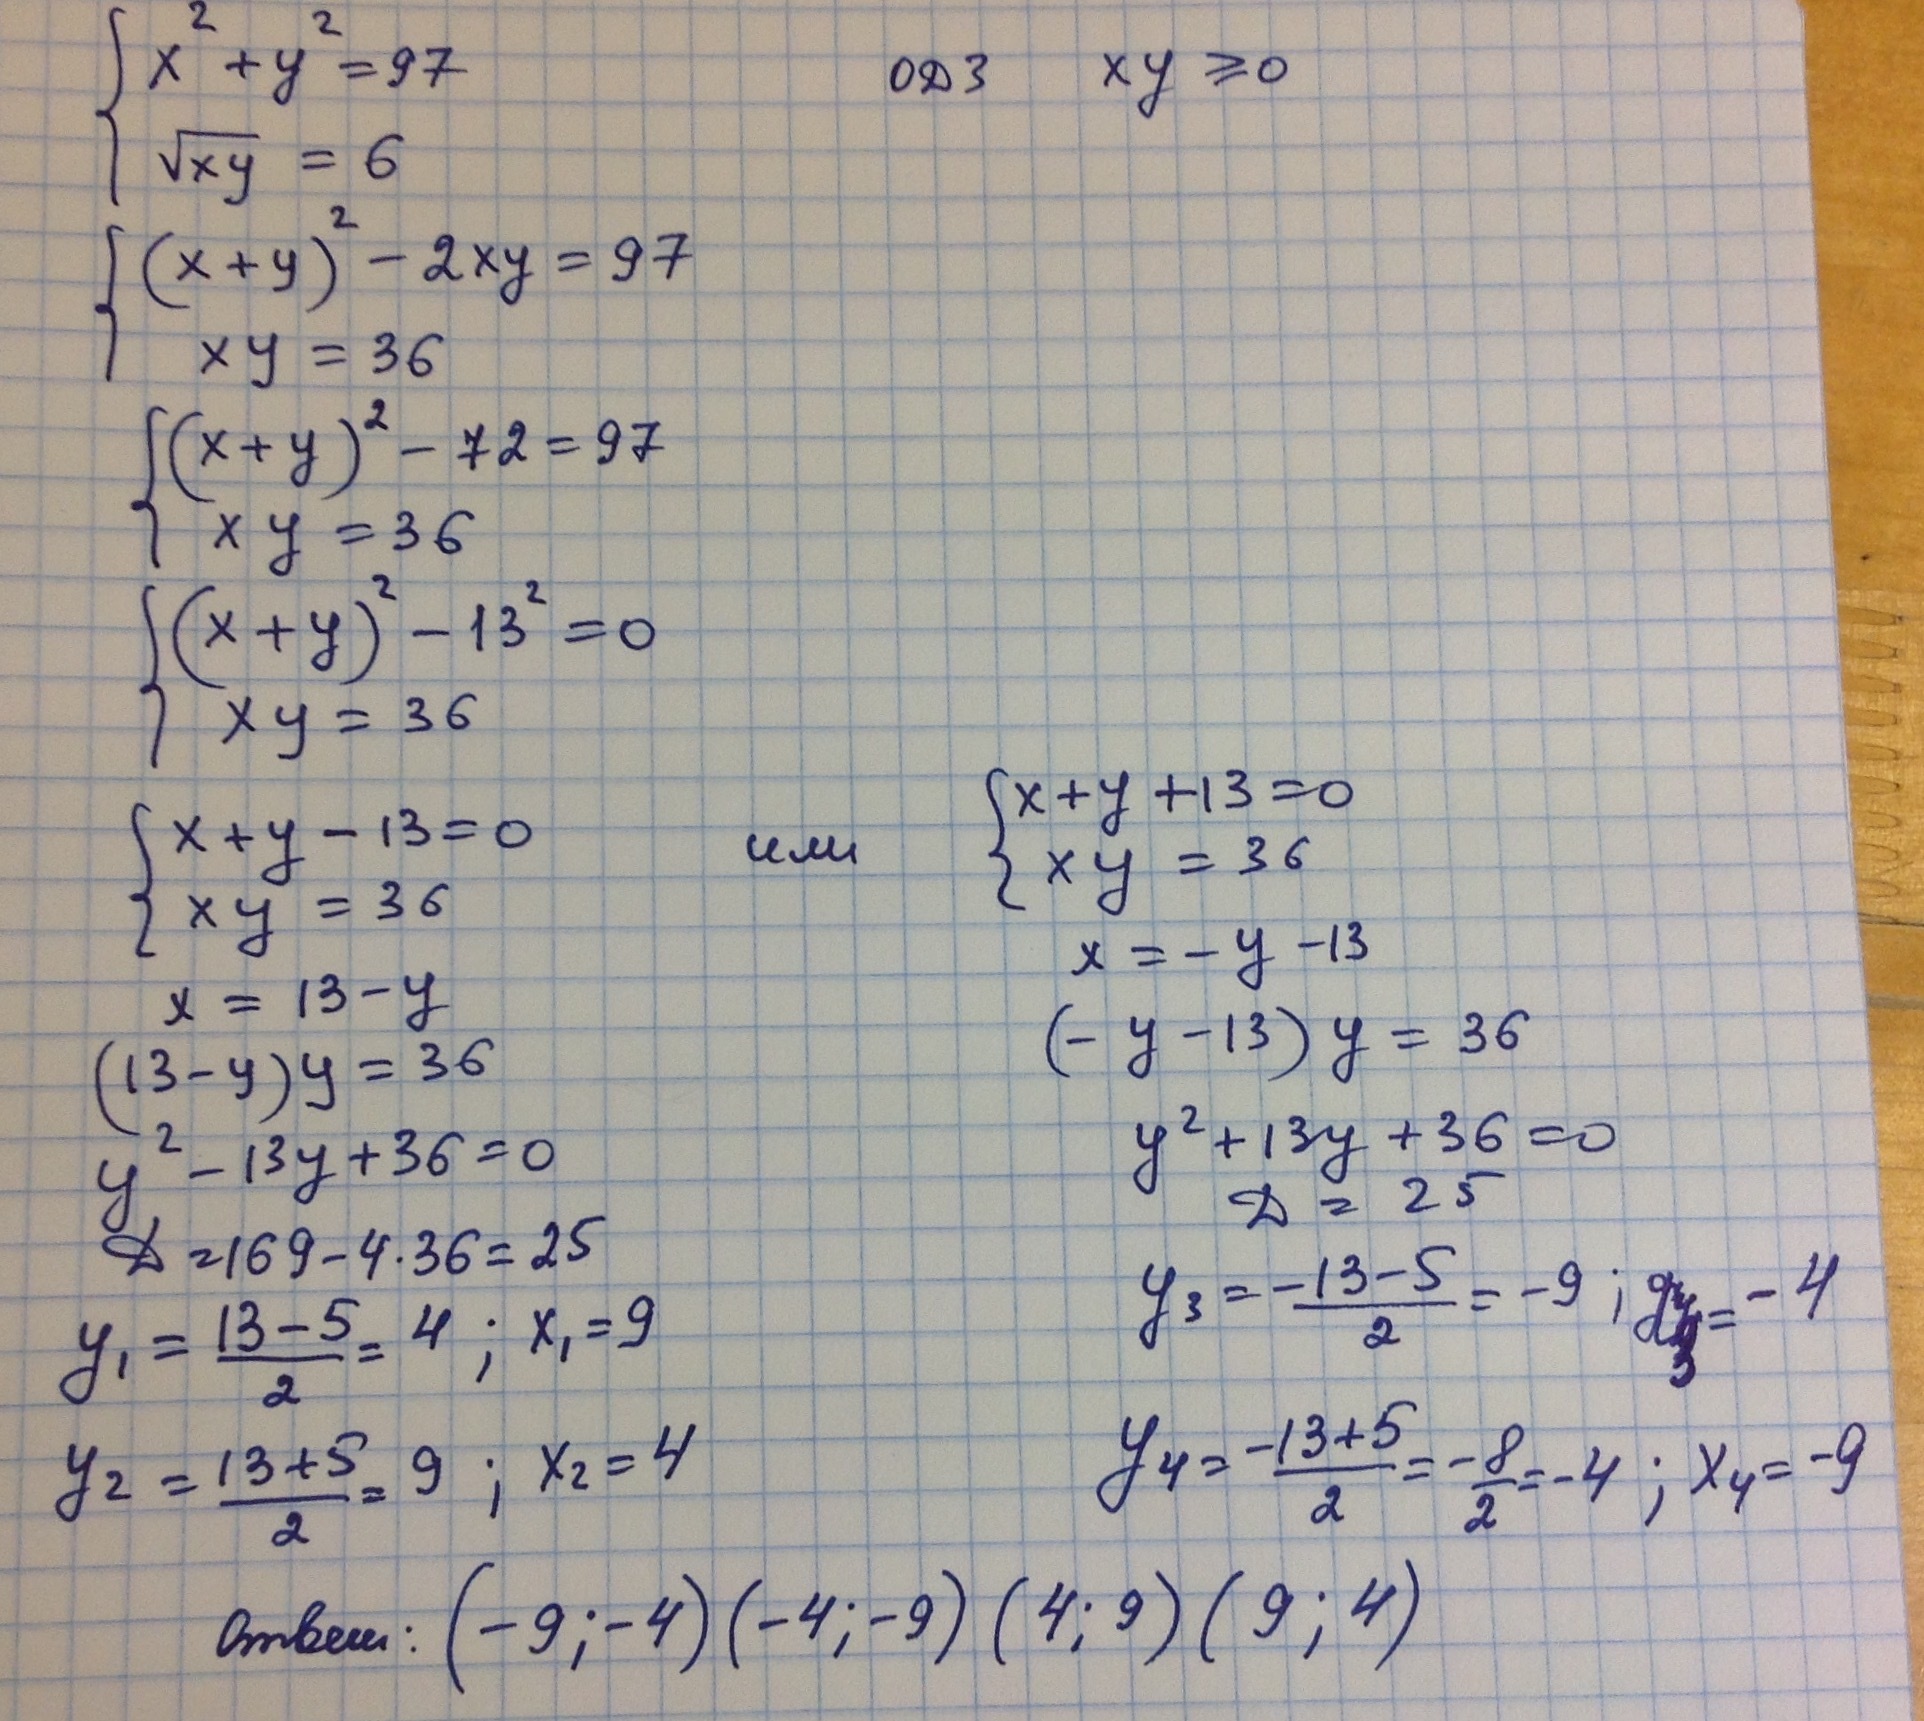 x² + y² = 97 ОДЗ xy ≥ 0
√xy = 6
(x + y)² - 2xy = 97
xy = 36
(x + y)² - 72 = 97
xy = 36
(x + y)² - 13² = 0
xy = 36
x + y - 13 = 0
xy = 36
x = 13 - y
(13 - y) y = 36
y² - 13y + 36 = 0
D = 169 - 4·36 = 25
y₁ = (13 - 5)/2 = 4 ; x₁ = 9
y₂ = (13 + 5)/2 = 9 ; x₂ = 4
или
x + y + 13 = 0
xy = 36
x = - y - 13
(- y - 13) y = 36
y² + 13y + 36 = 0
D = 25
y₃ = (-13 - 5)/2 = -9 ; = -4
y₄ = (-13 + 5)/2 = -8/2 = -4 ; x₄ = -9
Ответ: (-9; -4) (-4; -9) (4; 9) (9; 4)